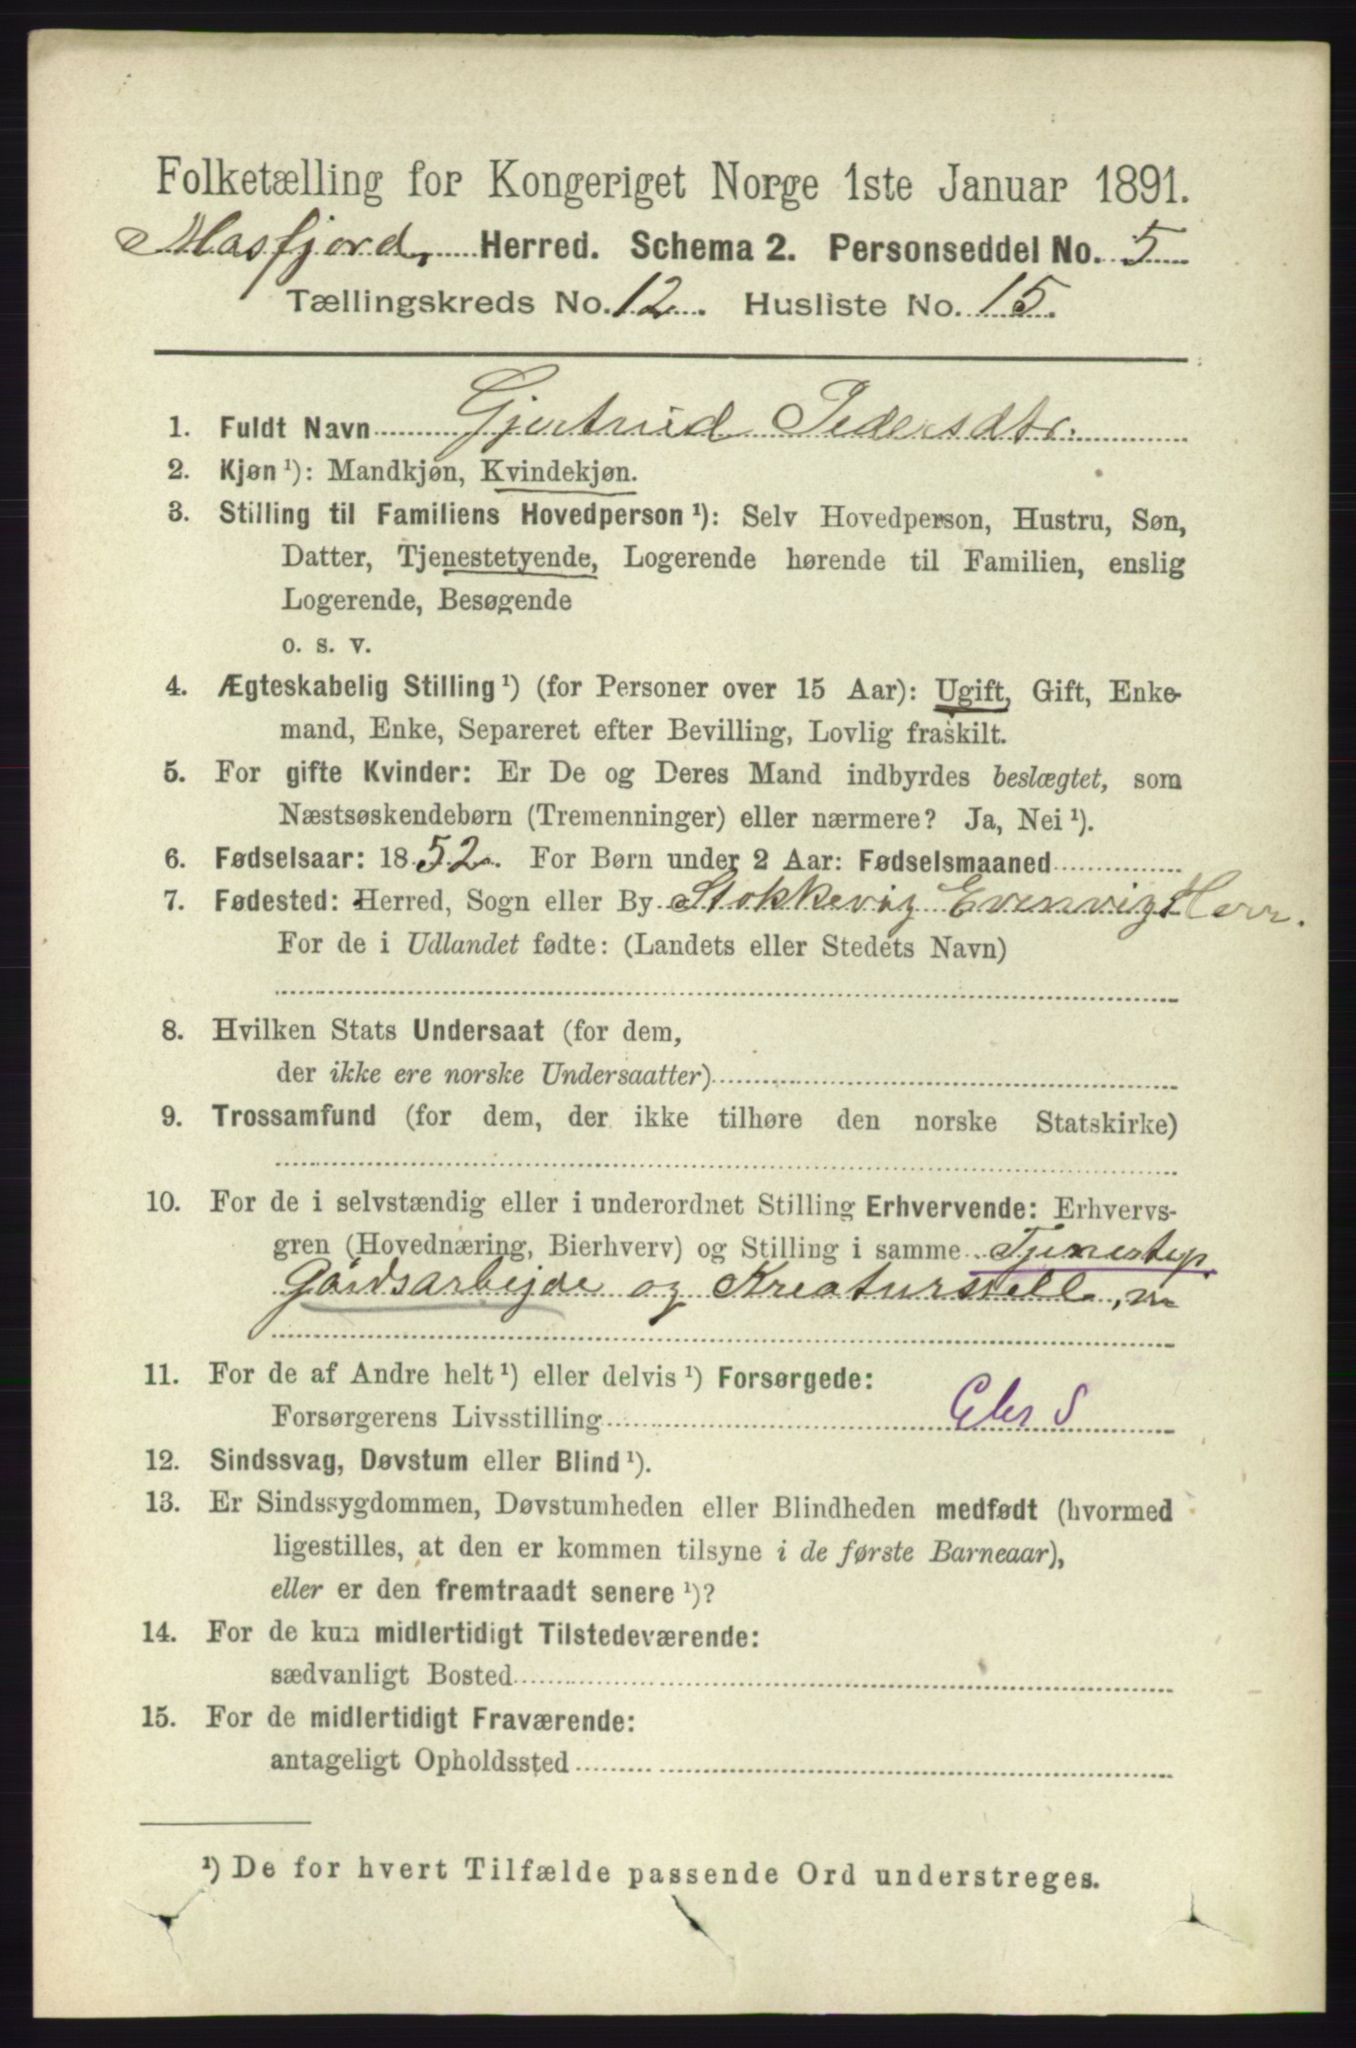 Folketælling for Kongeriget Norge 1ste Januar 1891.
Masfjord, Herred. Schema 2. Personseddel No. 5
Tællingskreds No. 12. Husliste No. 15.
1. Fuldt Navn Gjertrud Pedersdtr.
2. Kjøn ¹): Mandkjøn, Kvindekjøn.
3. Stilling til Familiens Hovedperson ¹): Selv Hovedperson, Hustru, Søn,
Datter, Tjenestetyende, Logerende hørende til Familien, enslig
Logerende, Besøgende
o. s. v.
4. Ægteskabelig Stilling ¹) (for Personer over 15 Aar): Ugift, Gift, Enke-
mand, Enke, Separeret efter Bevilling, Lovlig fraskilt.
5. For gifte Kvinder: Er De og Deres Mand indbyrdes beslægtet, som
Næstsøskendebørn (Tremenninger) eller nærmere? Ja, Nei ¹).
6. Fødselsaar: 1852. For Børn under 2 Aar: Fødselsmaaned
7. Fødested: Herred, Sogn eller By Stokkevig Evenvigs Herr.
For de i Udlandet fødte: (Landets eller Stedets Navn)
8. Hvilken Stats Undersaat (for dem,
der ikke ere norske Undersaatter)
9. Trossamfund (for dem, der ikke tilhøre den norske Statskirke)
10. For de i selvstændig eller i underordnet Stilling Erhvervende: Erhvervs-
gren (Hovednæring, Bierhverv) og Stilling i samme Tjenestep.
Gårdsarbejde og Kreaturstell,
11. For de af Andre helt ¹) eller delvis ¹) Forsørgede:
Forsørgerens Livsstilling
12. Sindssvag, Døvstum eller Blind ¹).
13. Er Sindssygdommen, Døvstumheden eller Blindheden medfødt (hvormed
ligestilles, at den er kommen tilsyne i de første Barneaar),
eller er den fremtraadt senere ¹)?
14. For de kun midlertidigt Tilstedeværende:
sædvanligt Bosted
15. For de midlertidigt Fraværende:
antageligt Opholdssted
¹) De for hvert Tilfælde passende Ord understreges.